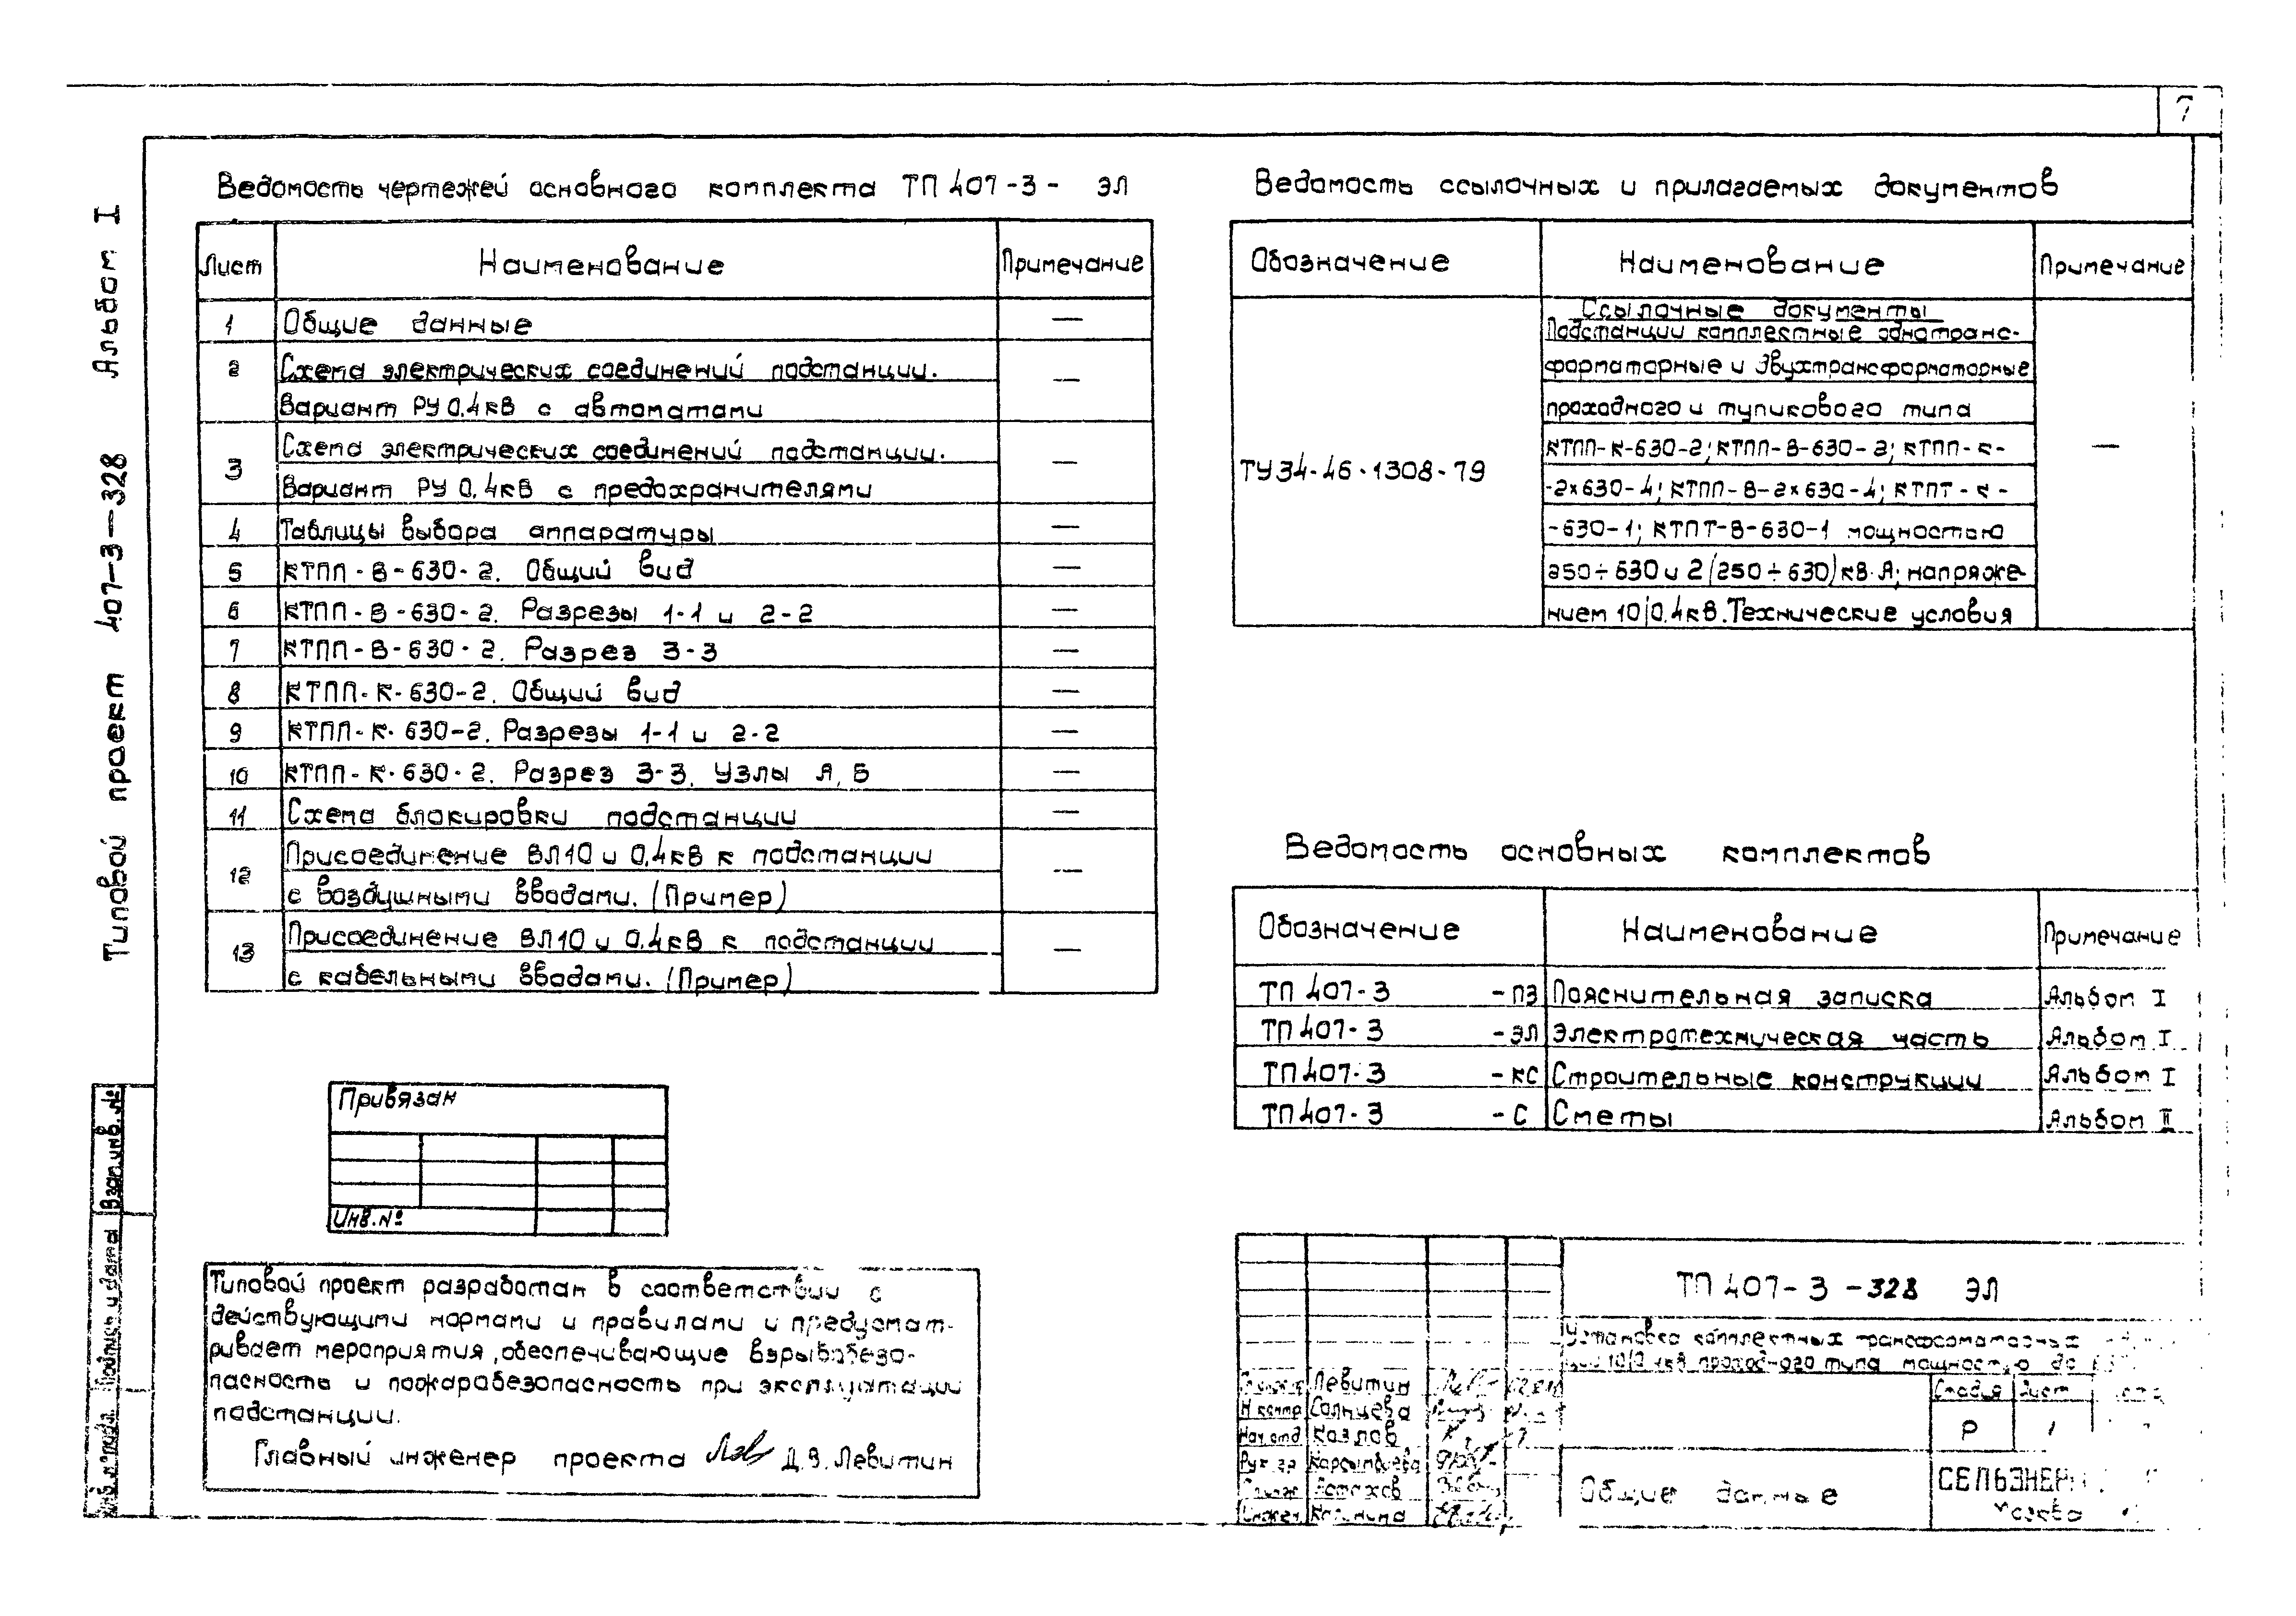 7
Типовой проект 407-3-328 Альбом I
Ведомость чертежей основного комплекта ТП 407-3- ЭЛ
Лист Наименование Примечание
1 Общие данные —
2 Схема электрических соединений подстанции. —
Вариант РУ 0,4кВ с автоматами
3 Схема электрических соединений подстанции. —
Вариант РУ 0,4кВ с предохранителями
4 Таблицы выбора аппаратуры —
5 КТПП-В-630-2. Общий вид —
6 КТПП-В-630-2. Разрезы 1-1 и 2-2 —
7 КТПП-В-630-2. Разрез 3-3 —
8 КТПП-К-630-2. Общий вид —
9 КТПП-К-630-2. Разрезы 1-1 и 2-2 —
10 КТПП-К-630-2. Разрез 3-3. Узлы А, Б —
11 Схема блокировки подстанции —
12 Присоединение ВЛ10 и 0,4кВ к подстанции —
с воздушными вводами. (Пример)
13 Присоединение ВЛ10 и 0,4кВ к подстанции —
с кабельными вводами. (Пример)
Ведомость ссылочных и прилагаемых документов
Обозначение Наименование Примечание
Ссылочные документы
Подстанции комплектные однотранс-
форматорные и двухтрансформаторные
проходного и тупикового типа
КТПП-К-630-2; КТПП-В-630-2; КТПП-К- —
ТУ34-46-1308-79
-2х630-4; КТПП-В-2х630-4; КТПТ-К-
-630-1; КТПТ-В-630-1 мощностью
250÷630 и 2(250÷630)кВ·А; напряже-
нием 10/0,4кВ. Технические условия
Ведомость основных комплектов
Обозначение Наименование Примечание
ТП 407-3 -ПЗ Пояснительная записка Альбом I
ТП 407-3 -ЭЛ Электротехническая часть Альбом I
ТП 407-3 -КС Строительные конструкции Альбом I
ТП 407-3 -С Сметы Альбом II
Привязан
Инв.№
Типовой проект разработан в соответствии с
действующими нормами и правилами и предусмат-
ривает мероприятия, обеспечивающие взрывобезо-
пасность и пожаробезопасность при эксплуатации
подстанции.
Главный инженер проекта Д.В.Левитин
Взам.инв.№
Подпись и дата
Инв.№подл.
ТП 407-3-328 ЭЛ
Установка комплектных трансформаторных
10/0,4кВ проходного типа мощностью до
Левитин
Н контр Солнцева
Нач.отд Козлов
Рук.гр
Астахов
Инжен. Калинина
Стадия Лист
Р 1
Общие данные
СЕЛЬЭНЕР
Москва